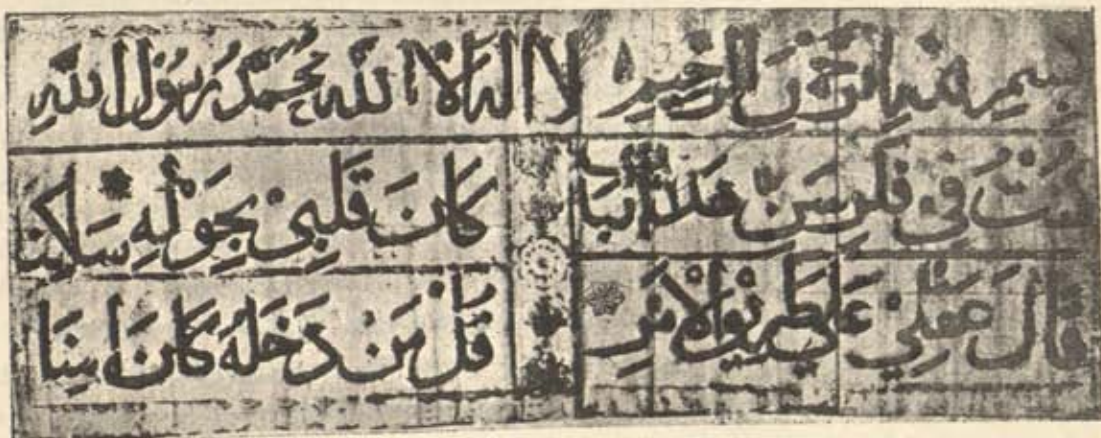 بسمِ الله الرحمن الرحيم لا اله الا الله محمد رسول اللهِ
كنتُ في فكرِ سنِّ كانَ قلبي بحولهِ ساكنا
قالَ عقلي علي طريق الامرِ قل من دخلهُ كانَ امنا